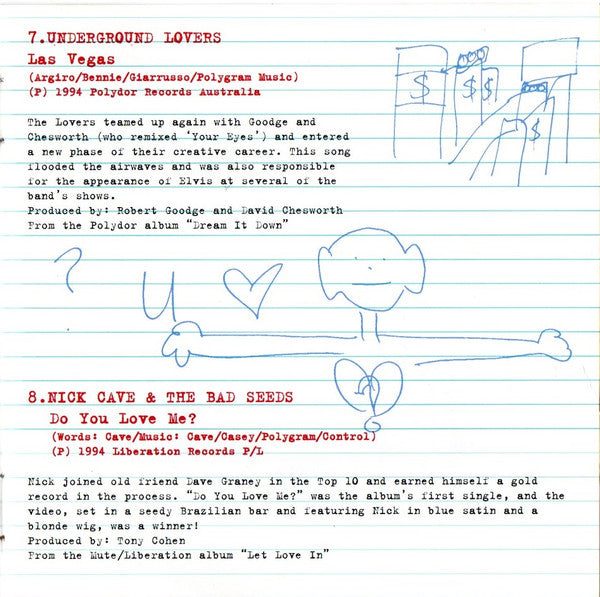 7.UNDERGROUND LOVERS
Las Vegas
(Argiro/Bennie/Giarrusso/Polygram Music)
(P) 1994 Polydor Records Australia
$ $ $
$
The Lovers teamed up again with Goodge and
Chesworth (who remixed 'Your Eyes') and entered
a new phase of their creative career. This song
flooded the airwaves and was also responsible
for the appearance of Elvis at several of the
band's shows.
Produced by: Robert Goodge and David Chesworth
From the Polydor album "Dream It Down"
? U
?
8.NICK CAVE & THE BAD SEEDS
Do You Love Me?
(Words: Cave/Music: Cave/Casey/Polygram/Control)
(P) 1994 Liberation Records P/L
Nick joined old friend Dave Graney in the Top 10 and earned himself a gold
record in the process. "Do You Love Me?" was the album's first single, and the
video, set in a seedy Brazilian bar and featuring Nick in blue satin and a
blonde wig, was a winner!
Produced by: Tony Cohen
From the Mute/Liberation album "Let Love In"